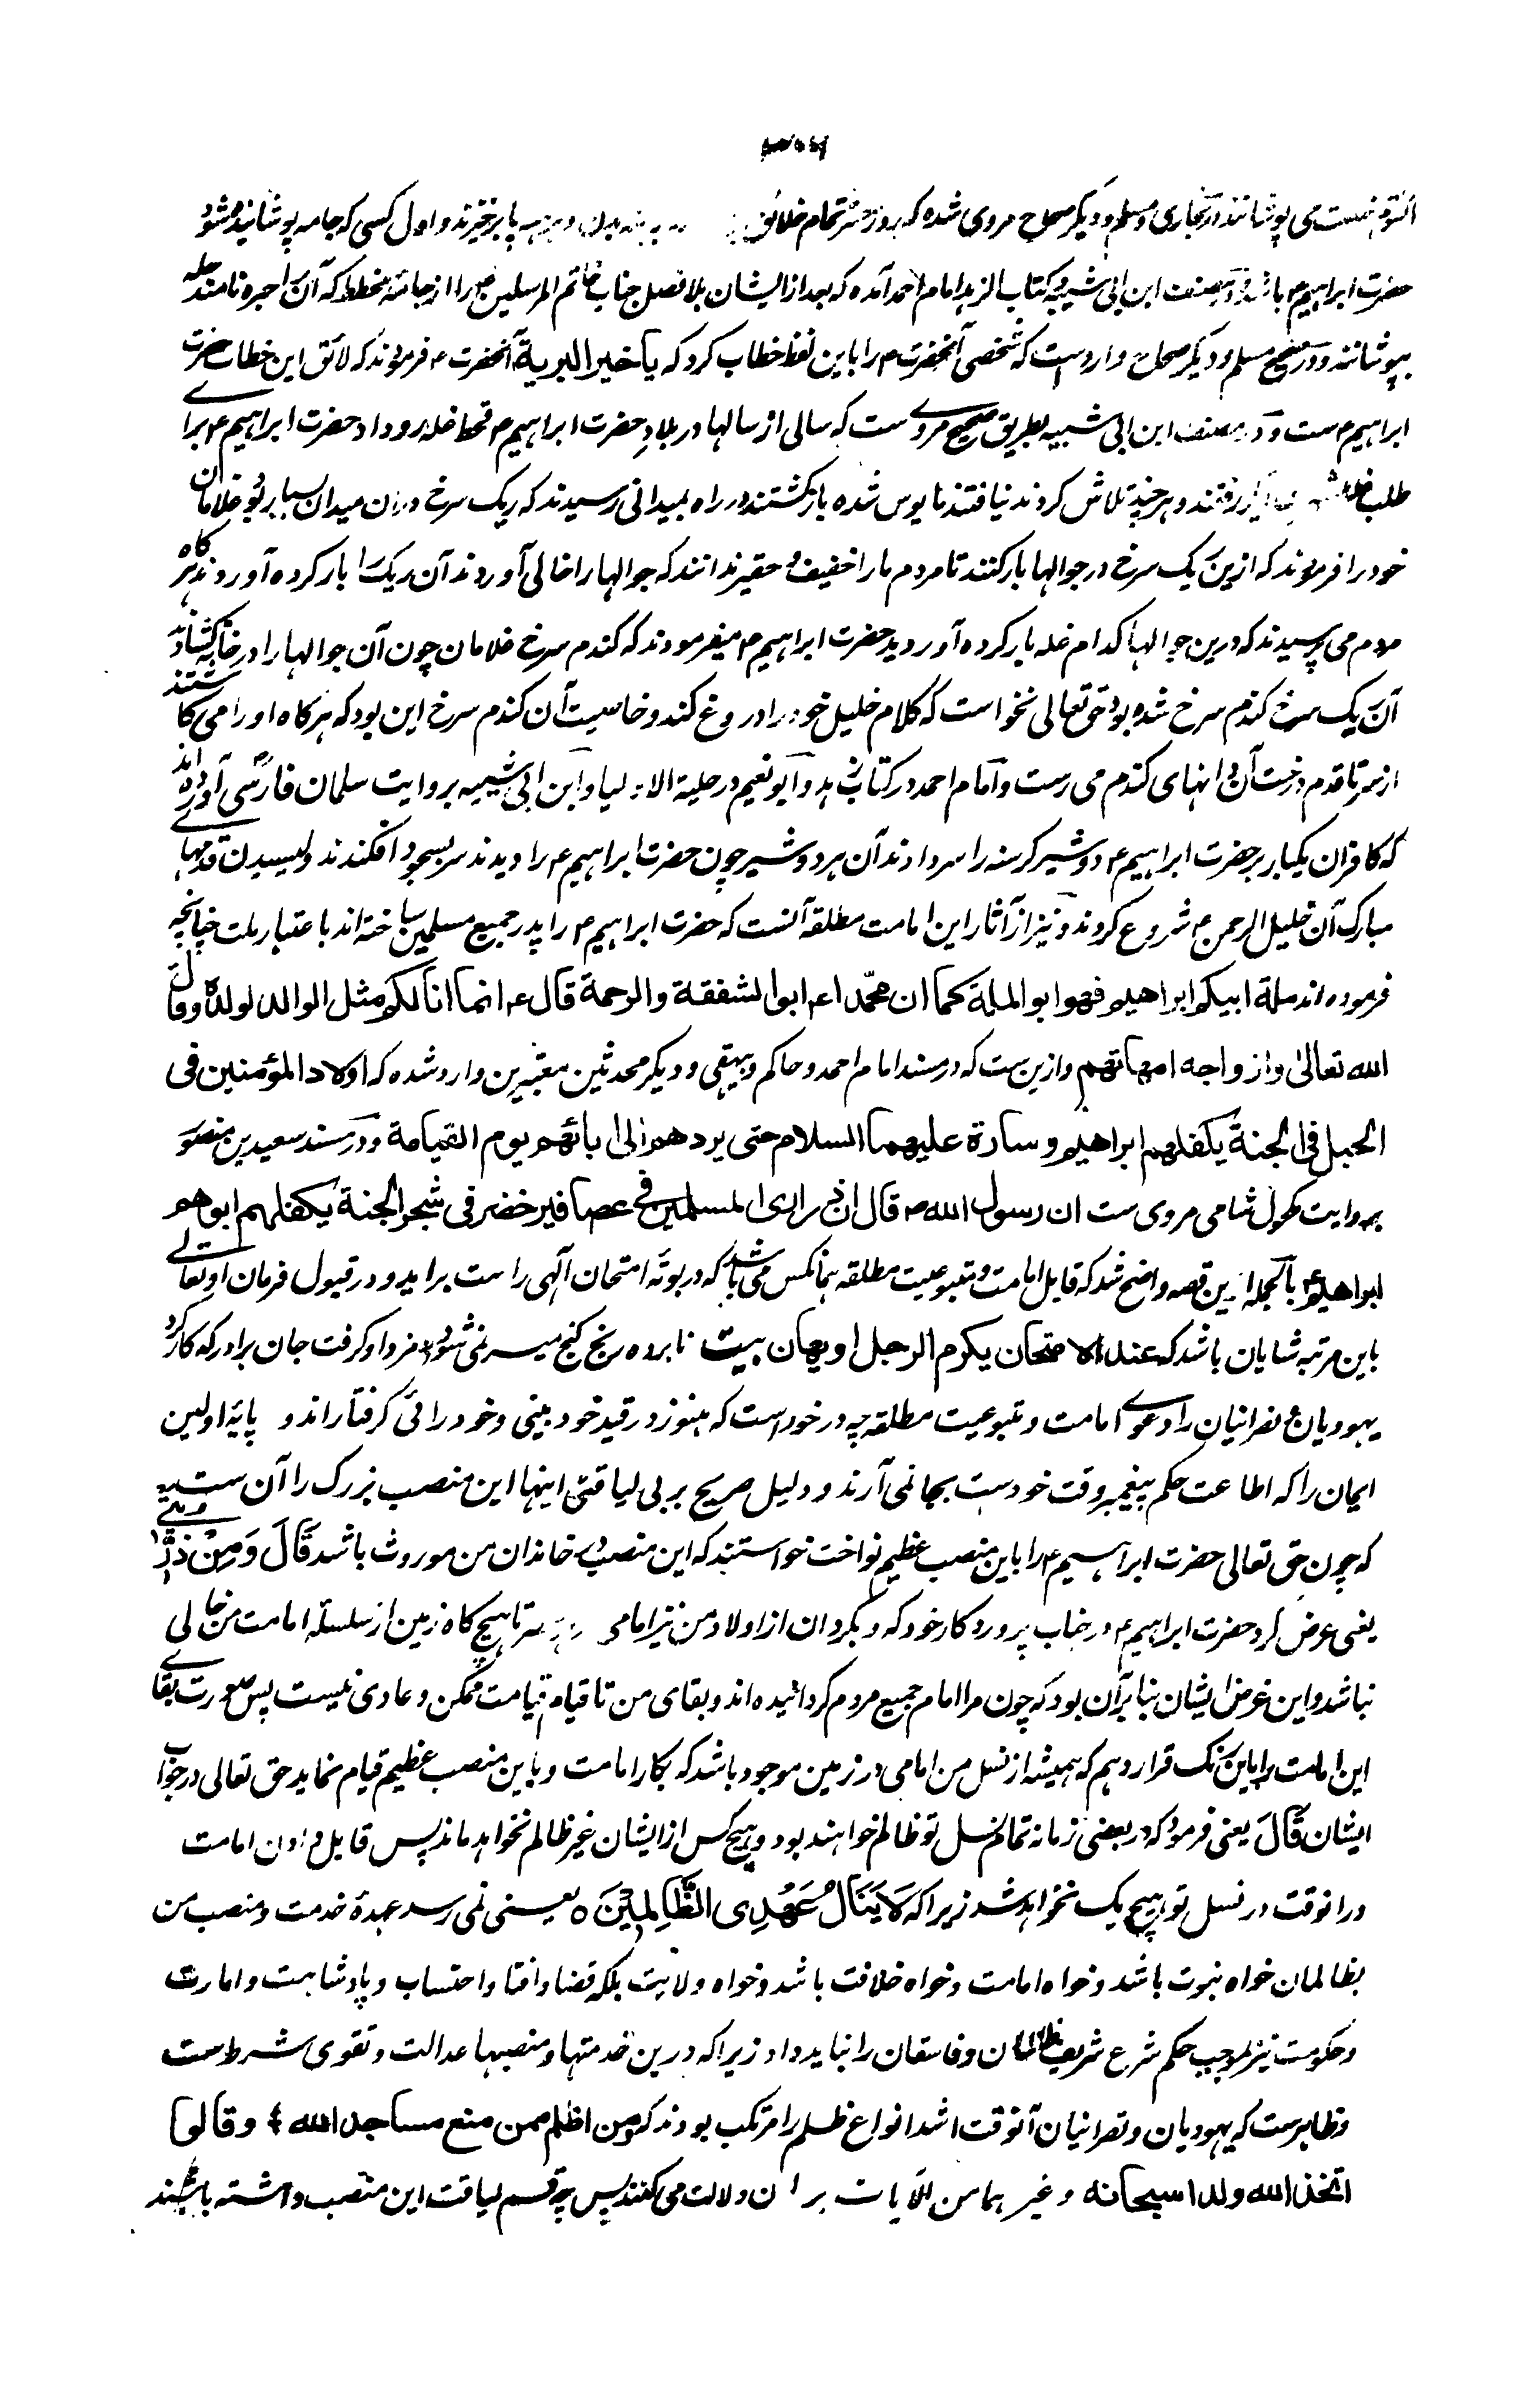 می پوشانند و در بخاری و مسلم و دیگر صحاح مروی شده که روز حشر تمام خلائق برهنه پا برخیزند و اول کسی که جامه پوشانیده شود
حضرت ابراهیم ع باشد و در مصنف ابن ابی شیبه و کتاب الزهد امام احمد آمده که بعد از ایشان بلا فصل جناب خاتم المرسلین ص را از جامه مخطط که آن را حبره نامند حله
بپوشانند و در صحیح مسلم و دیگر صحاح وارد است که شخصی آنحضرت ص را باین لفظ خطاب کرد که یا خیر البریة آنحضرت ع فرمودند که لائق این خطاب حضرت
ابراهیم ع ست و در مصنف ابن ابی شیبه بطریق صحیح مروی ست که سالی از سالها در بلاد حضرت ابراهیم ع قحط غله رو داد حضرت ابراهیم ع برای
طلب غله رفتند و هرچند تلاش کردند نیافتند مایوس شده بازگشتند در راه بمیدانی رسیدند که ریگ سرخ در آن میدان بسیار بود غلامان
خود را فرمودند که ازین ریگ سرخ در جوالها بار کنند تا مردم ما را خفیف و حقیر ندانند که جوالها را خالی آوردند آن ریگ را بار کرده آوردند هر گاه
مردم می پرسیدند که درین جوالها کدام غله بار کرده آوردید حضرت ابراهیم ع میفرمودند که گندم سرخ غلامان چون آن جوالها را در خانه کشادند
آن ریگ سرخ گندم سرخ شده بود حق تعالی نخواست که کلام خلیل خود را دروغ کند و خاصیت آن گندم سرخ این بود که هرگاه او را می کاشتند
از سر تا قدم درخت آن دانهای گندم می رست و امام احمد در کتاب زهد و ابو نعیم در حلیة الاولیا و ابن ابی شیبه بروایت سلمان فارسی آورده اند
که کافران یکبار بر حضرت ابراهیم ع دو شیر گرسنه را سر دادند آن هر دو شیر چون حضرت ابراهیم ع را دیدند سر بسجود افکندند و لیسیدن قدمهای
مبارک آن خلیل الرحمن ع شروع کردند و نیز از آثار این امامت مطلقه آنست که حضرت ابراهیم ع را پدر جمیع مسلمین ساخته اند باعتبار ملت چنانچه
فرموده اند ملة ابیکم ابراهیم فهو ابو الملة کما ان محمدا ع ابو الشفقة والرحمة قال ع انما انا لکم مثل الوالد لولده وقال
الله تعالی وازواجه امهاتهم وازین ست که در مسند امام احمد و حاکم و بیهقی و دیگر محدثین معتبرین وارد شده که اولاد المؤمنین فی
الجبل فی الجنة یکفلهم ابراهیم و سارة علیهما السلام حتی یردهم الی ابائهم یوم القیامة و در مسند سعید بن منصور
بروایت مکحول شامی مروی ست ان رسول الله ص قال ان ذراری المسلمین فی عصافیر خضر فی شجر الجنة یکفلهم ابوهم
ابراهیم ع بالجمله ازین قصه واضح شد که قابل امامت و متبوعیت مطلقه همانکس می باشد که در بوته امتحان آلهی راست براید و در قبول فرمان او تعالی
باین مرتبه شایان باشد که عند الامتحان یکرم الرجل او یهان بیت نابرده رنج گنج میسر نمی شود مزد او گرفت جان برادر که کار کرد
یهودیان و نصرانیان را دعوی امامت و متبوعیت مطلقه چه در خورد است که هنوز در قید خود بینی و خود رائی گرفتار اند و پایه اولین
ایمان را که اطاعت حکم پیغمبر وقت خودست بجا نمی آرند و دلیل صریح بر بی لیاقتی اینها این منصب بزرگ را آن ست
که چون حق تعالی حضرت ابراهیم ع را باین منصب عظیم نواخت خواستند که این منصب در خاندان من موروث باشد قَالَ وَمِنْ ذُرِّیَّتِی
یعنی عرض کرد حضرت ابراهیم ع در جناب پروردگار خود که و بگردان از اولاد من نیز امامی تا هیچ گاه زمین از سلسله امامت من خالی
نباشد و این عرض ایشان بنا برآن بود که چون مرا امام جمیع مردم گردانیده اند و بقای من تا قیام قیامت ممکن و عادی نیست پس صورت بقای
این امامت را باین رنگ قرار دهم که همیشه از نسل من امامی در زمین موجود باشد که بکار امامت و باین منصب عظیم قیام نماید حق تعالی در جواب
ایشان قَالَ یعنی فرمود که در بعضی زمانه تمام نسل تو ظالم خواهند بود و هیچ کس از ایشان غیر ظالم نخواهد ماند پس قابل دادن امامت
در انوقت در نسل تو هیچ یک نخواهد شد زیرا که لَا یَنَالُ عَهْدِی الظَّالِمِیْنَ ه یعنی نمی رسد عهدهٔ خدمت و منصب من
بظالمان خواه نبوت باشد و خواه امامت و خواه خلافت باشد و خواه ولایت بلکه قضا و افتا و احتساب و پادشاهت و امارت
و حکومت نیز بموجب حکم شرع شریف ظالمان و فاسقان را نباید داد زیرا که درین خدمتها و منصبها عدالت و تقوی شرط ست
و ظاهرست که یهودیان و نصرانیان آنوقت اشد انواع ظلم را مرتکب بودند که ومن اظلم ممن منع مساجد الله و قالوا
اتخذ الله ولدا سبحانه و غیر هما من الآیات بر آن دلالت می کنند پس چه قسم لیاقت این منصب داشته باشند